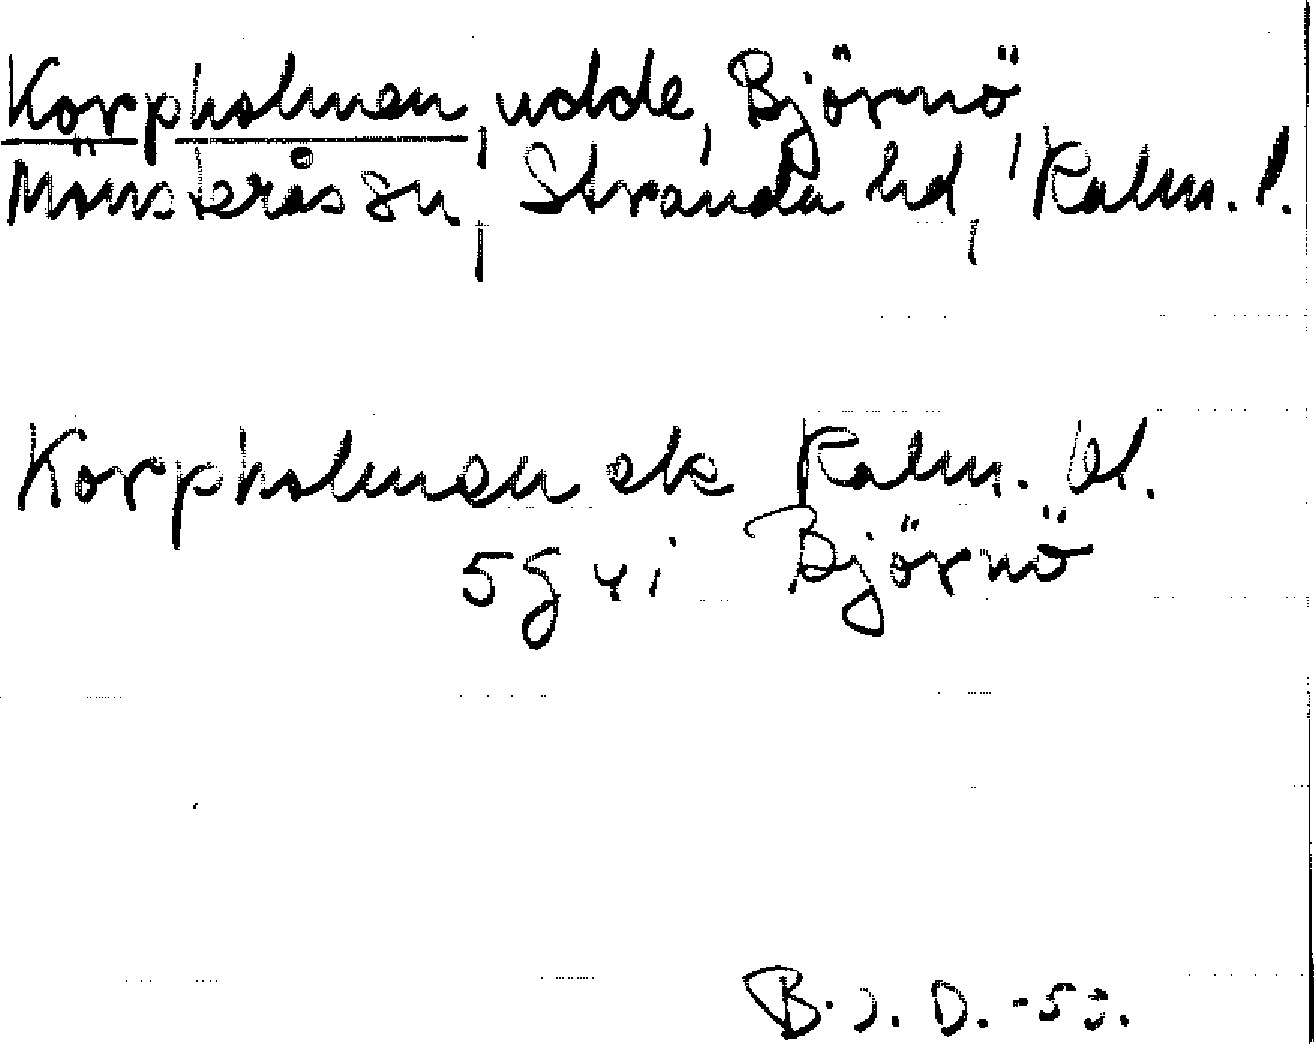 Korpholmen, udde, Björnö,
Mönsterås sn, Stranda hd, Kalm. l.
Korpholmen ek Kalm. bl.
5g4i Björnö
B. J. D.